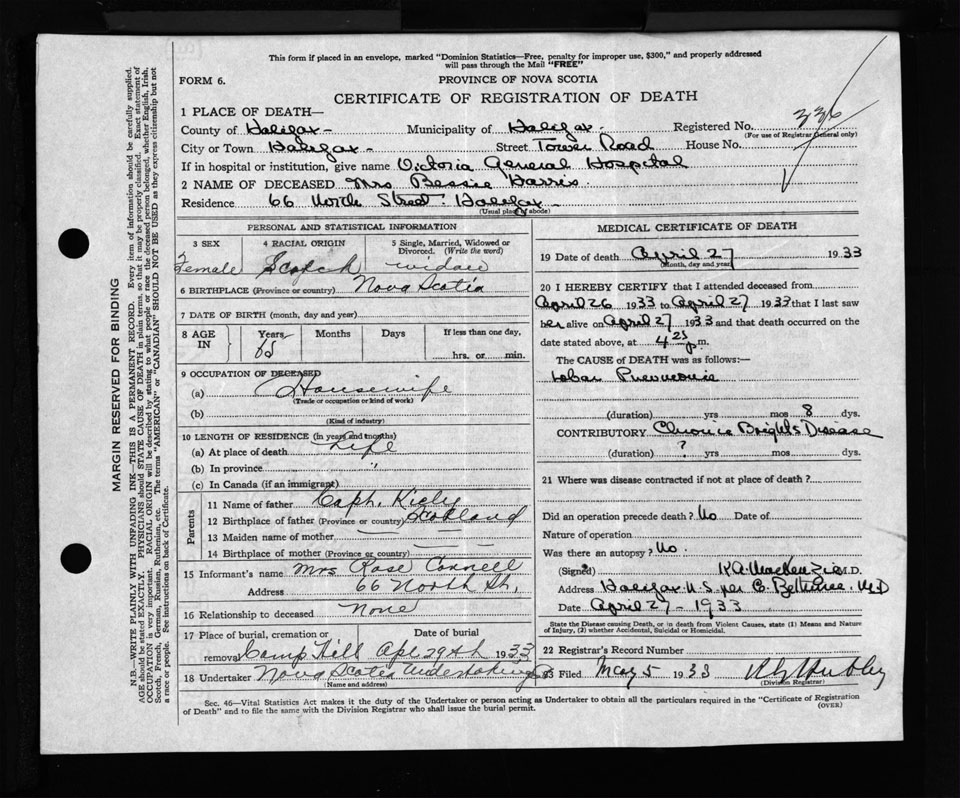 This form if placed in an envelope, marked "Dominion Statistics—Free, penalty for improper use, $300," and properly addressed
will pass through the Mail "FREE"
FORM 6.
PROVINCE OF NOVA SCOTIA
CERTIFICATE OF REGISTRATION OF DEATH
336
1 PLACE OF DEATH—
County of Halifax - Municipality of Halifax - Registered No.
(For use of Registrar General only)
City or Town Halifax - Street Tower Road House No.
If in hospital or institution, give name Victoria General Hospital
2 NAME OF DECEASED Mrs Bessie Harris
Residence 66 North Street. Halifax
(Usual place of abode)
PERSONAL AND STATISTICAL INFORMATION
3 SEX 4 RACIAL ORIGIN 5 Single, Married, Widowed or Divorced. (Write the word)
Female Scotch widow
6 BIRTHPLACE (Province or country) Nova Scotia
7 DATE OF BIRTH (month, day and year)
8 AGE IN Years Months Days If less than one day,
hrs. or min.
9 OCCUPATION OF DECEASED
(a) Housewife
(Trade or occupation or kind of work)
(b)
(Kind of industry)
10 LENGTH OF RESIDENCE (in years and months)
(a) At place of death Life
(b) In province "
(c) In Canada (if an immigrant)
Parents
11 Name of father Capt.
12 Birthplace of father (Province or country) Scotland
13 Maiden name of mother — —
14 Birthplace of mother (Province or country) — —
15 Informant's name Mrs Rose Connell
Address 66 North St,
16 Relationship to deceased None
17 Place of burial, cremation or removal Camp Hill Date of burial Apl 29th 1933
18 Undertaker Nova Scotia Undertaking Co
(Name and address)
MEDICAL CERTIFICATE OF DEATH
19 Date of death April 27 1933
(Month, day and year)
20 I HEREBY CERTIFY that I attended deceased from
April 26 1933 to April 27 1933 that I last saw
her alive on April 27 1933 and that death occurred on the
date stated above, at 4 25 p.m.
The CAUSE of DEATH was as follows:—
Lobar Pneumonia
(duration) yrs mos 8 dys.
CONTRIBUTORY Chronic Bright's Disease
(duration) ? yrs mos dys.
21 Where was disease contracted if not at place of death?
Did an operation precede death? No Date of
Nature of operation
Was there an autopsy? No.
(Signed) K A MacKenzie M.D.
Address Halifax N.S. per M.D
Date April 27 - 1933
State the Disease causing Death, or in death from Violent Causes, state (1) Means and Nature of Injury, (2) whether Accidental, Suicidal or Homicidal.
22 Registrar's Record Number
23 Filed May 5 1933
(Division Registrar)
Sec. 46—Vital Statistics Act makes it the duty of the Undertaker or person acting as Undertaker to obtain all the particulars required in the "Certificate of Registration
of Death" and to file the same with the Division Registrar who shall issue the burial permit.
(OVER)
MARGIN RESERVED FOR BINDING
N.B.—WRITE PLAINLY WITH UNFADING INK—THIS IS A PERMANENT RECORD. Every item of information should be carefully supplied.
AGE should be stated EXACTLY. PHYSICIANS should STATE CAUSE OF DEATH in plain terms, so that it may be properly classified. Exact statement of
OCCUPATION is very important. RACIAL ORIGIN will be described by stating to what people or race the deceased person belonged, whether English, Irish,
Scotch, French, German, Russian, Ruthenian, etc. The terms "AMERICAN" or "CANADIAN" SHOULD NOT BE USED as they express citizenship but not
a race or people. See instructions on back of Certificate.